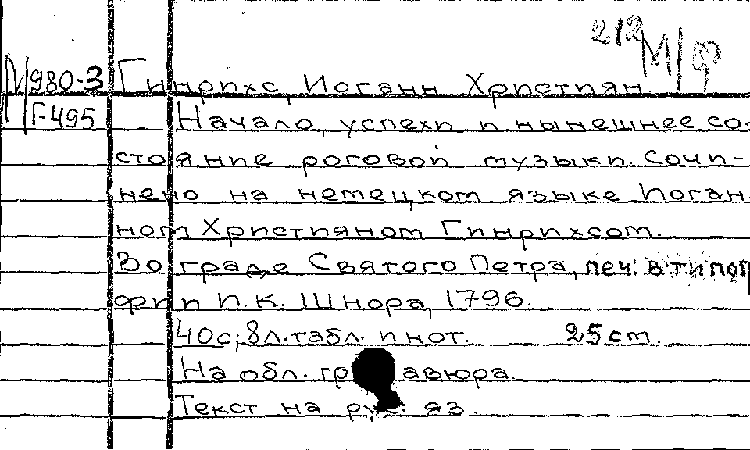 212
М/ф
М/980-3 Гинрихс, Иоганн Христиан
F495 Начало, успехи и нынешнее со-
стояние роговой музыки. Сочи-
нено на немецком языке Иоган
ном Христианом Гинрихсом.
Во граде Святого Петра, печ. в типог
фии И. К. Шнора, 1796.
40с, 8л. табл. и нот. 25cm.
На обл. гравюра.
Текст на рус. яз.